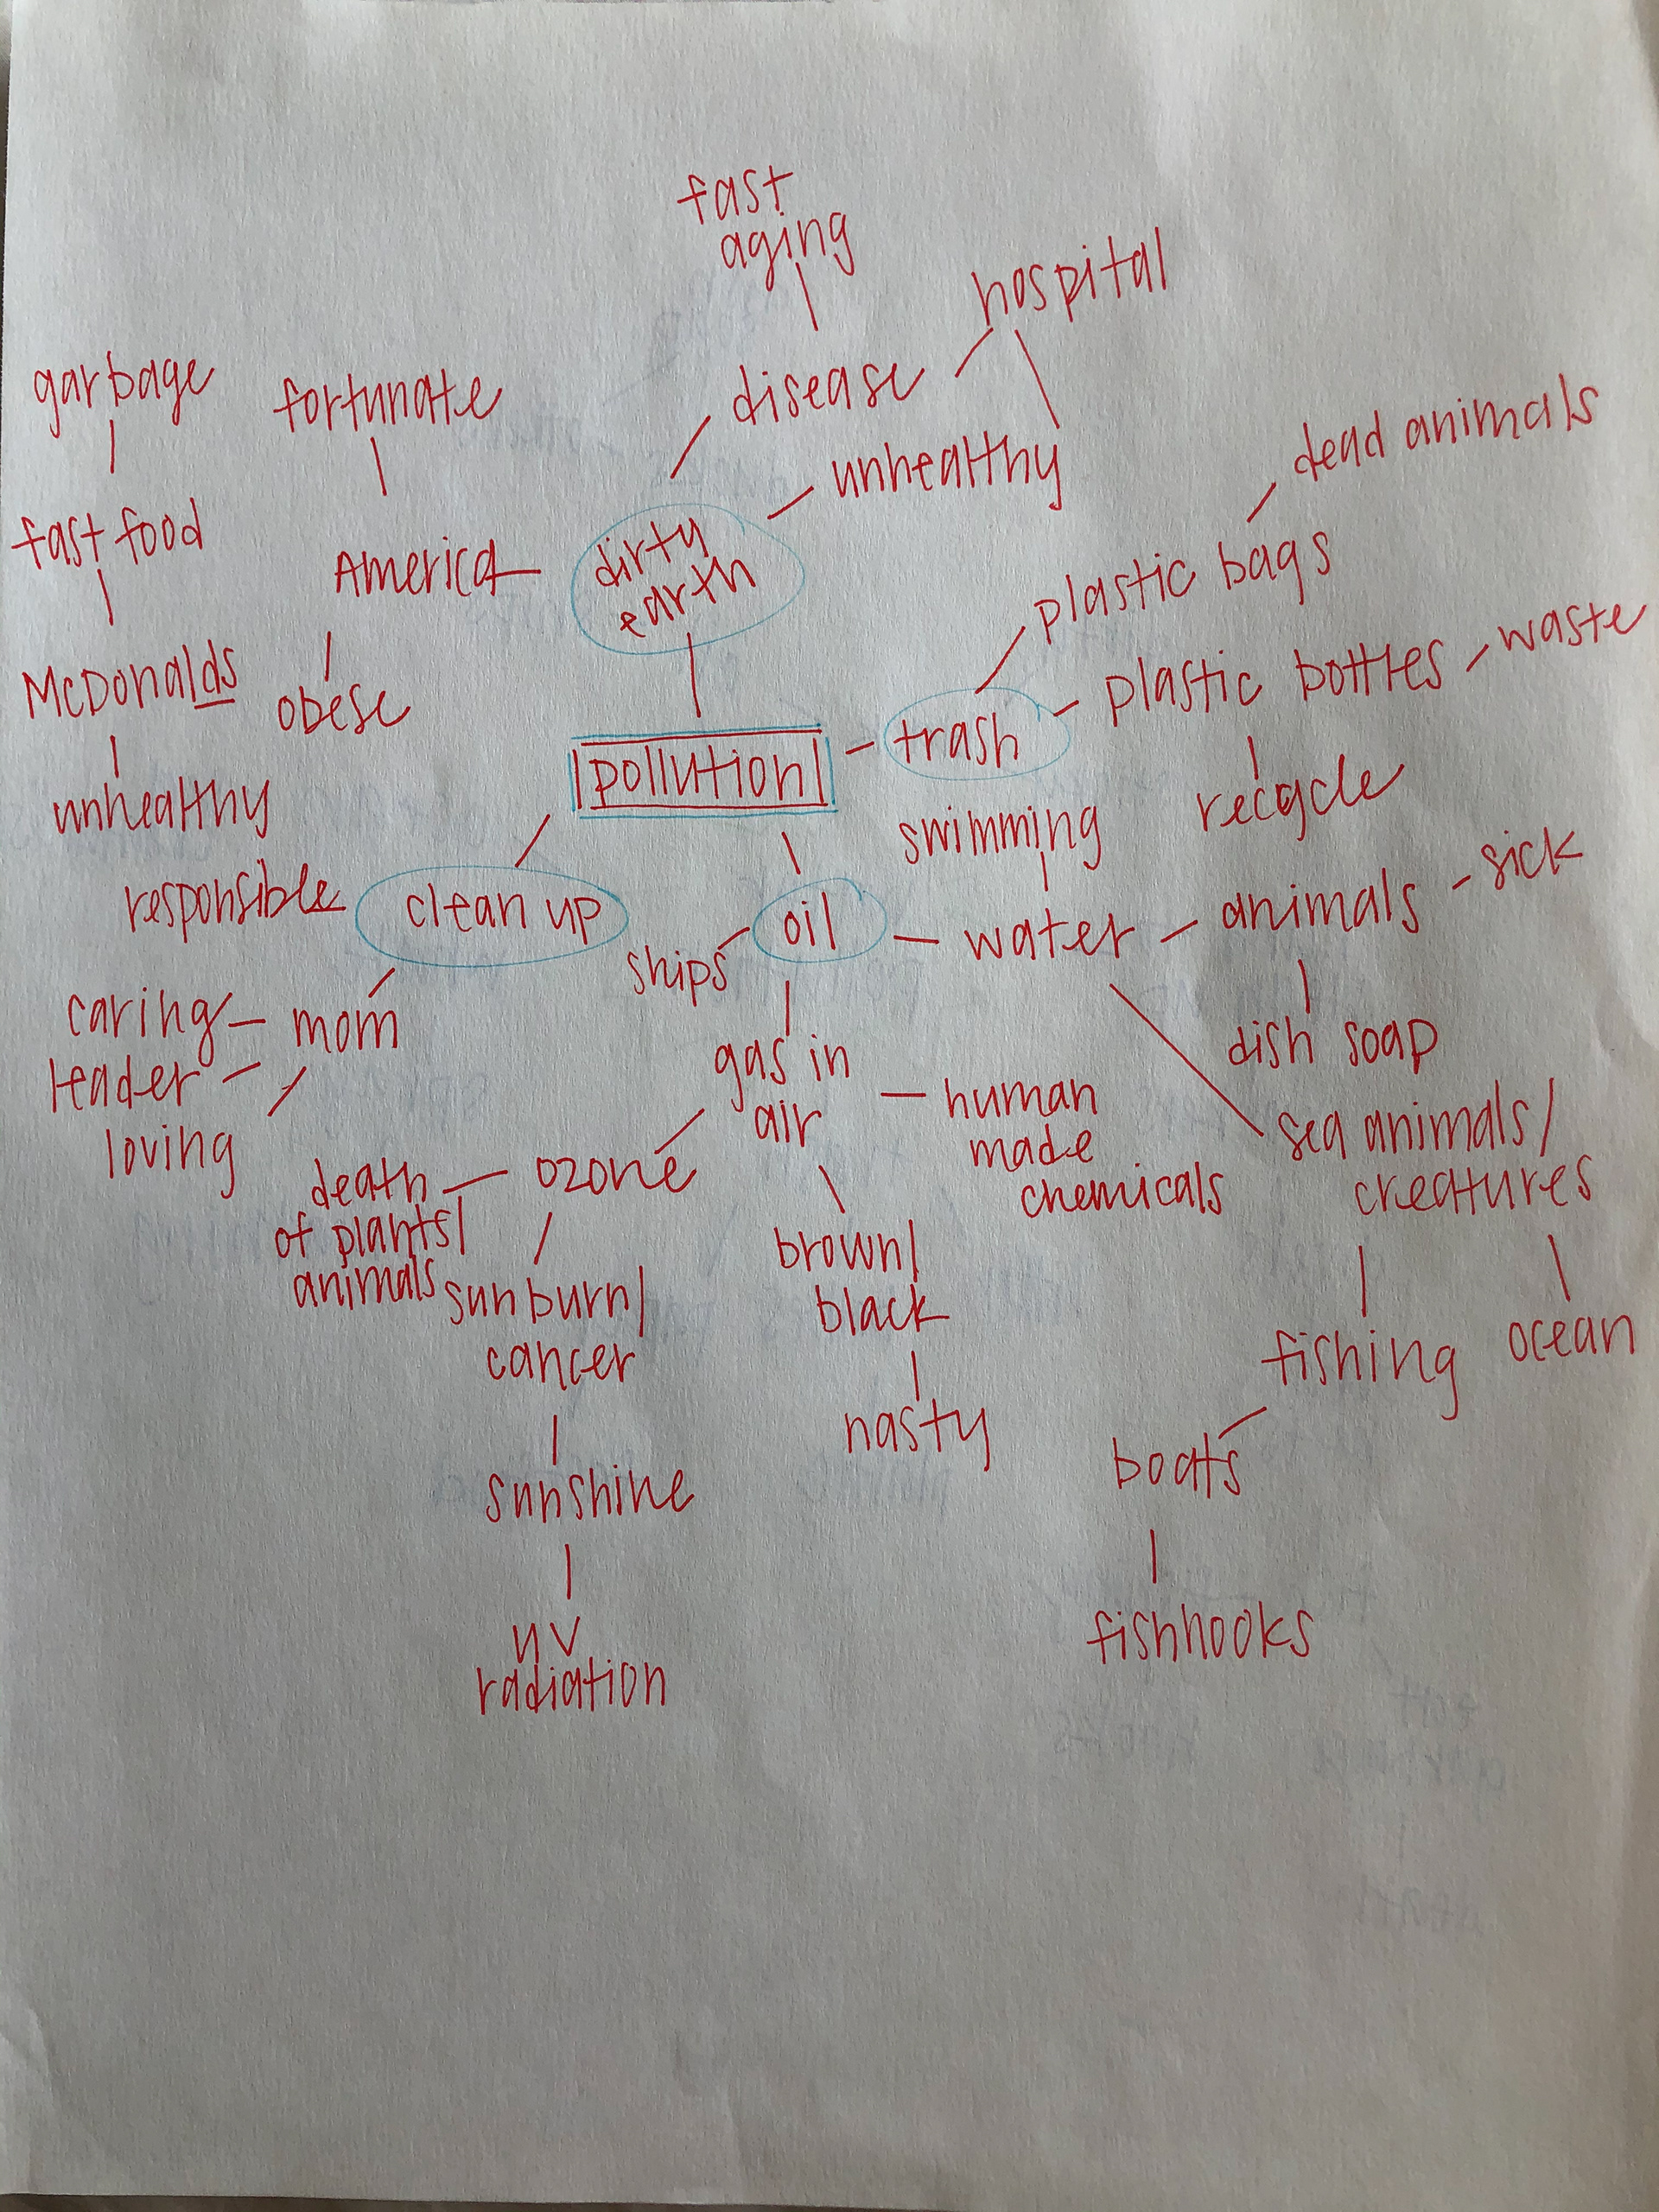 fast
aging
hospital
garbage
fortunate
disease
dead animals
unhealthy
fast food
America
dirty
earth
plastic bags
McDonalds
obese
plastic bottles
waste
pollution
trash
unhealthy
swimming
recycle
responsible
clean up
ships
oil
water
animals
sick
caring
mom
leader
loving
gas in
air
dish soap
human
made
chemicals
sea animals/
creatures
death
of plants/
animals
ozone
sunburn/
cancer
brown/
black
fishing
ocean
nasty
boats
sunshine
fishhooks
uv
radiation